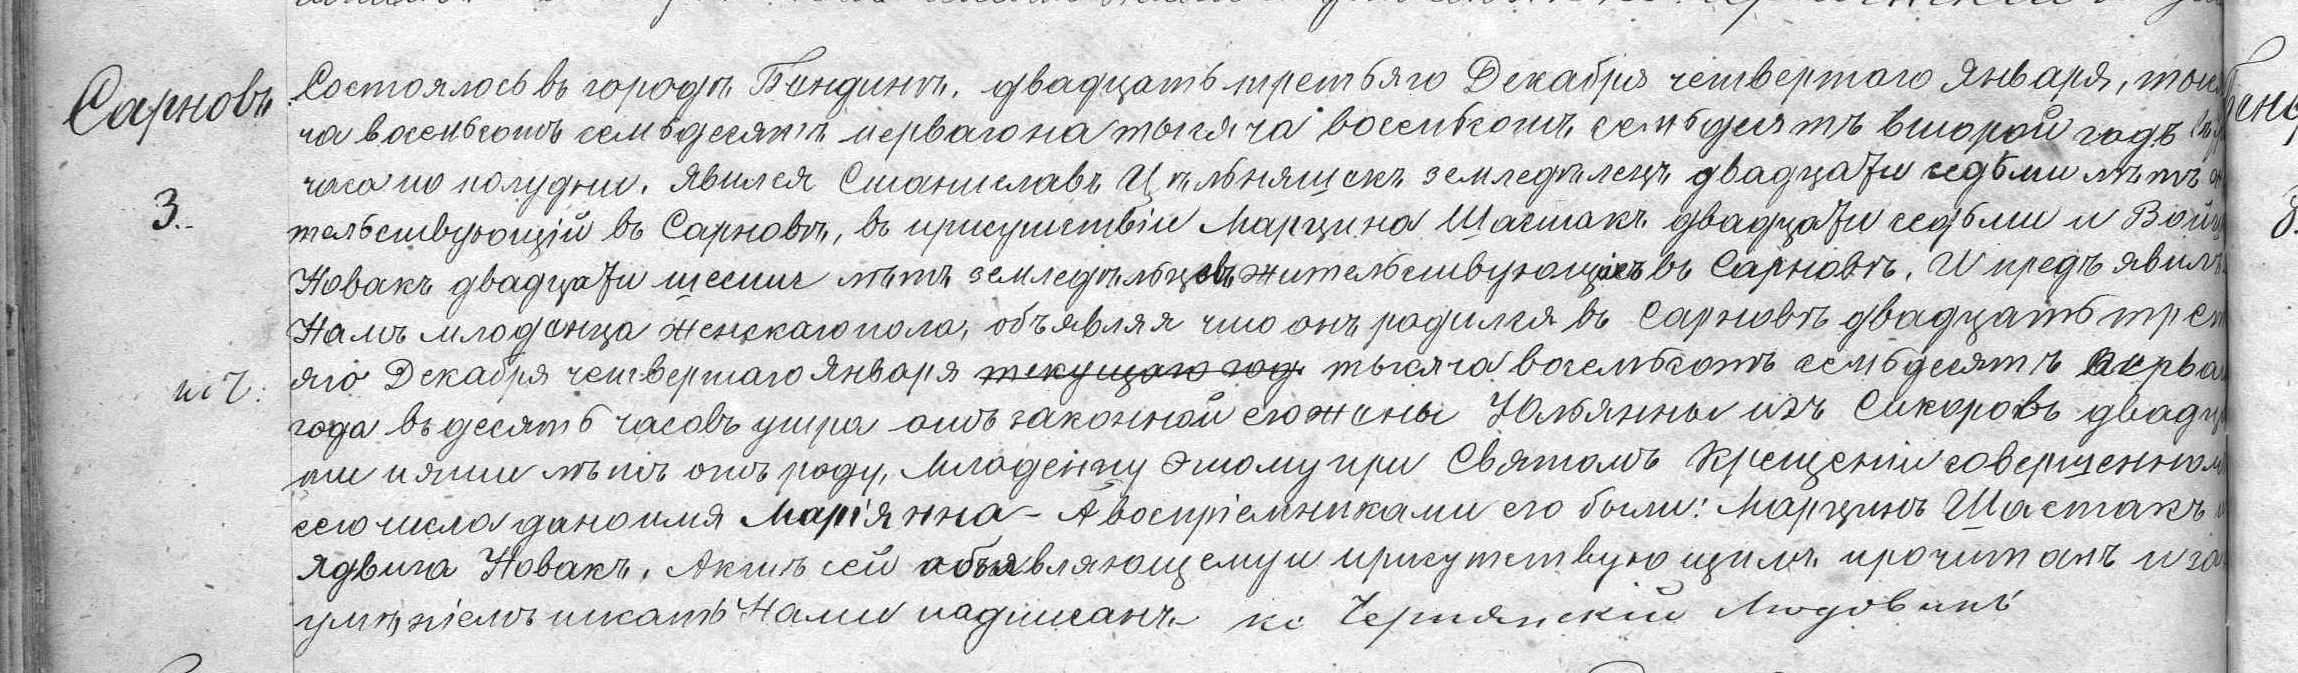 Сарновъ
3.
Состоялось въ городѣ Бендинѣ, двадцать третьяго Декабря четвертаго Января, тыся
ча восемьсотъ семьдесятъ перваго на тысяча восемьсотъ семьдесятъ второй годъ
часа по полудни. Явился Станиславъ земледѣлецъ двадцати седьми лѣтъ
тельствующій въ Сарновѣ, въ присутствіи Марцина Шастакъ двадцати седьми и Вой
Новакъ двадцати шести лѣтъ земледѣльцевъ жительствующихъ въ Сарновѣ. И предъявилъ
Намъ младенца женскаго пола, объявляя что онъ родился въ Сарновѣ двадцать трет
яго Декабря четвертаго Января текущаго год тысяча восемьсотъ семьдесятъ перва
года въ десять часовъ утра отъ законной его жены Юльянны изъ Сикоровъ двадц
ти пяти лѣтъ отъ роду. Младенцу этому при Святомъ Крещеніи совершенном
сего числа дано имя Маріянна - А воспріемниками его были: Марцинъ Шастакъ и
Ядвига Новакъ. Актъ сей объявляющему и присутствующимъ прочитанъ и
умѣніемъ писать Нами подписанъ. Кс Людовикъ